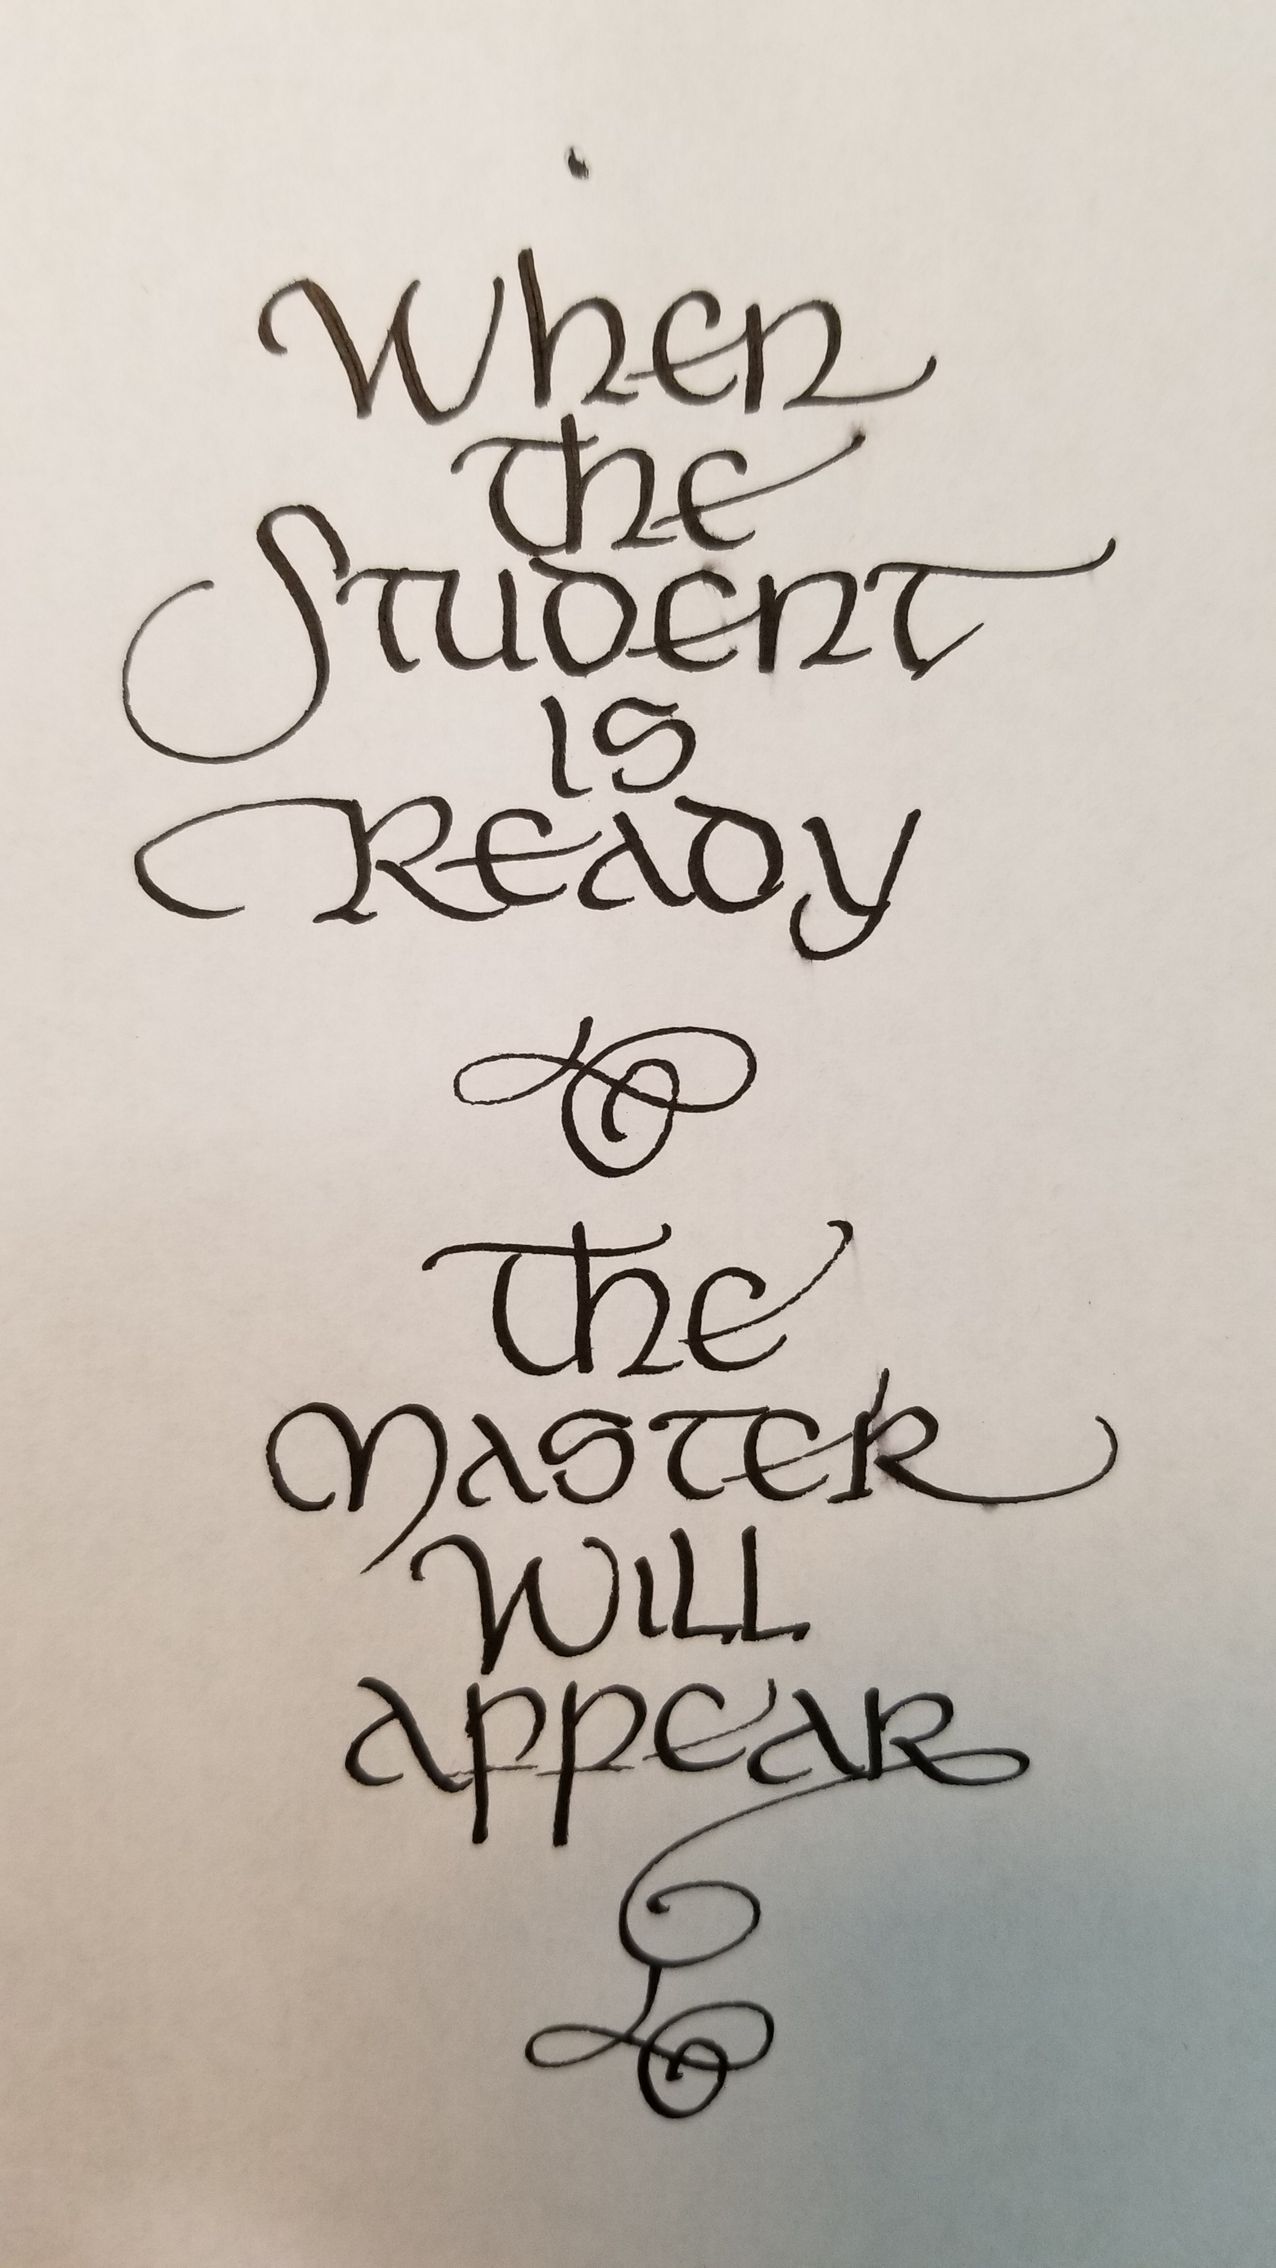 When
the
Student
is
Ready
The
Master
Will
appear